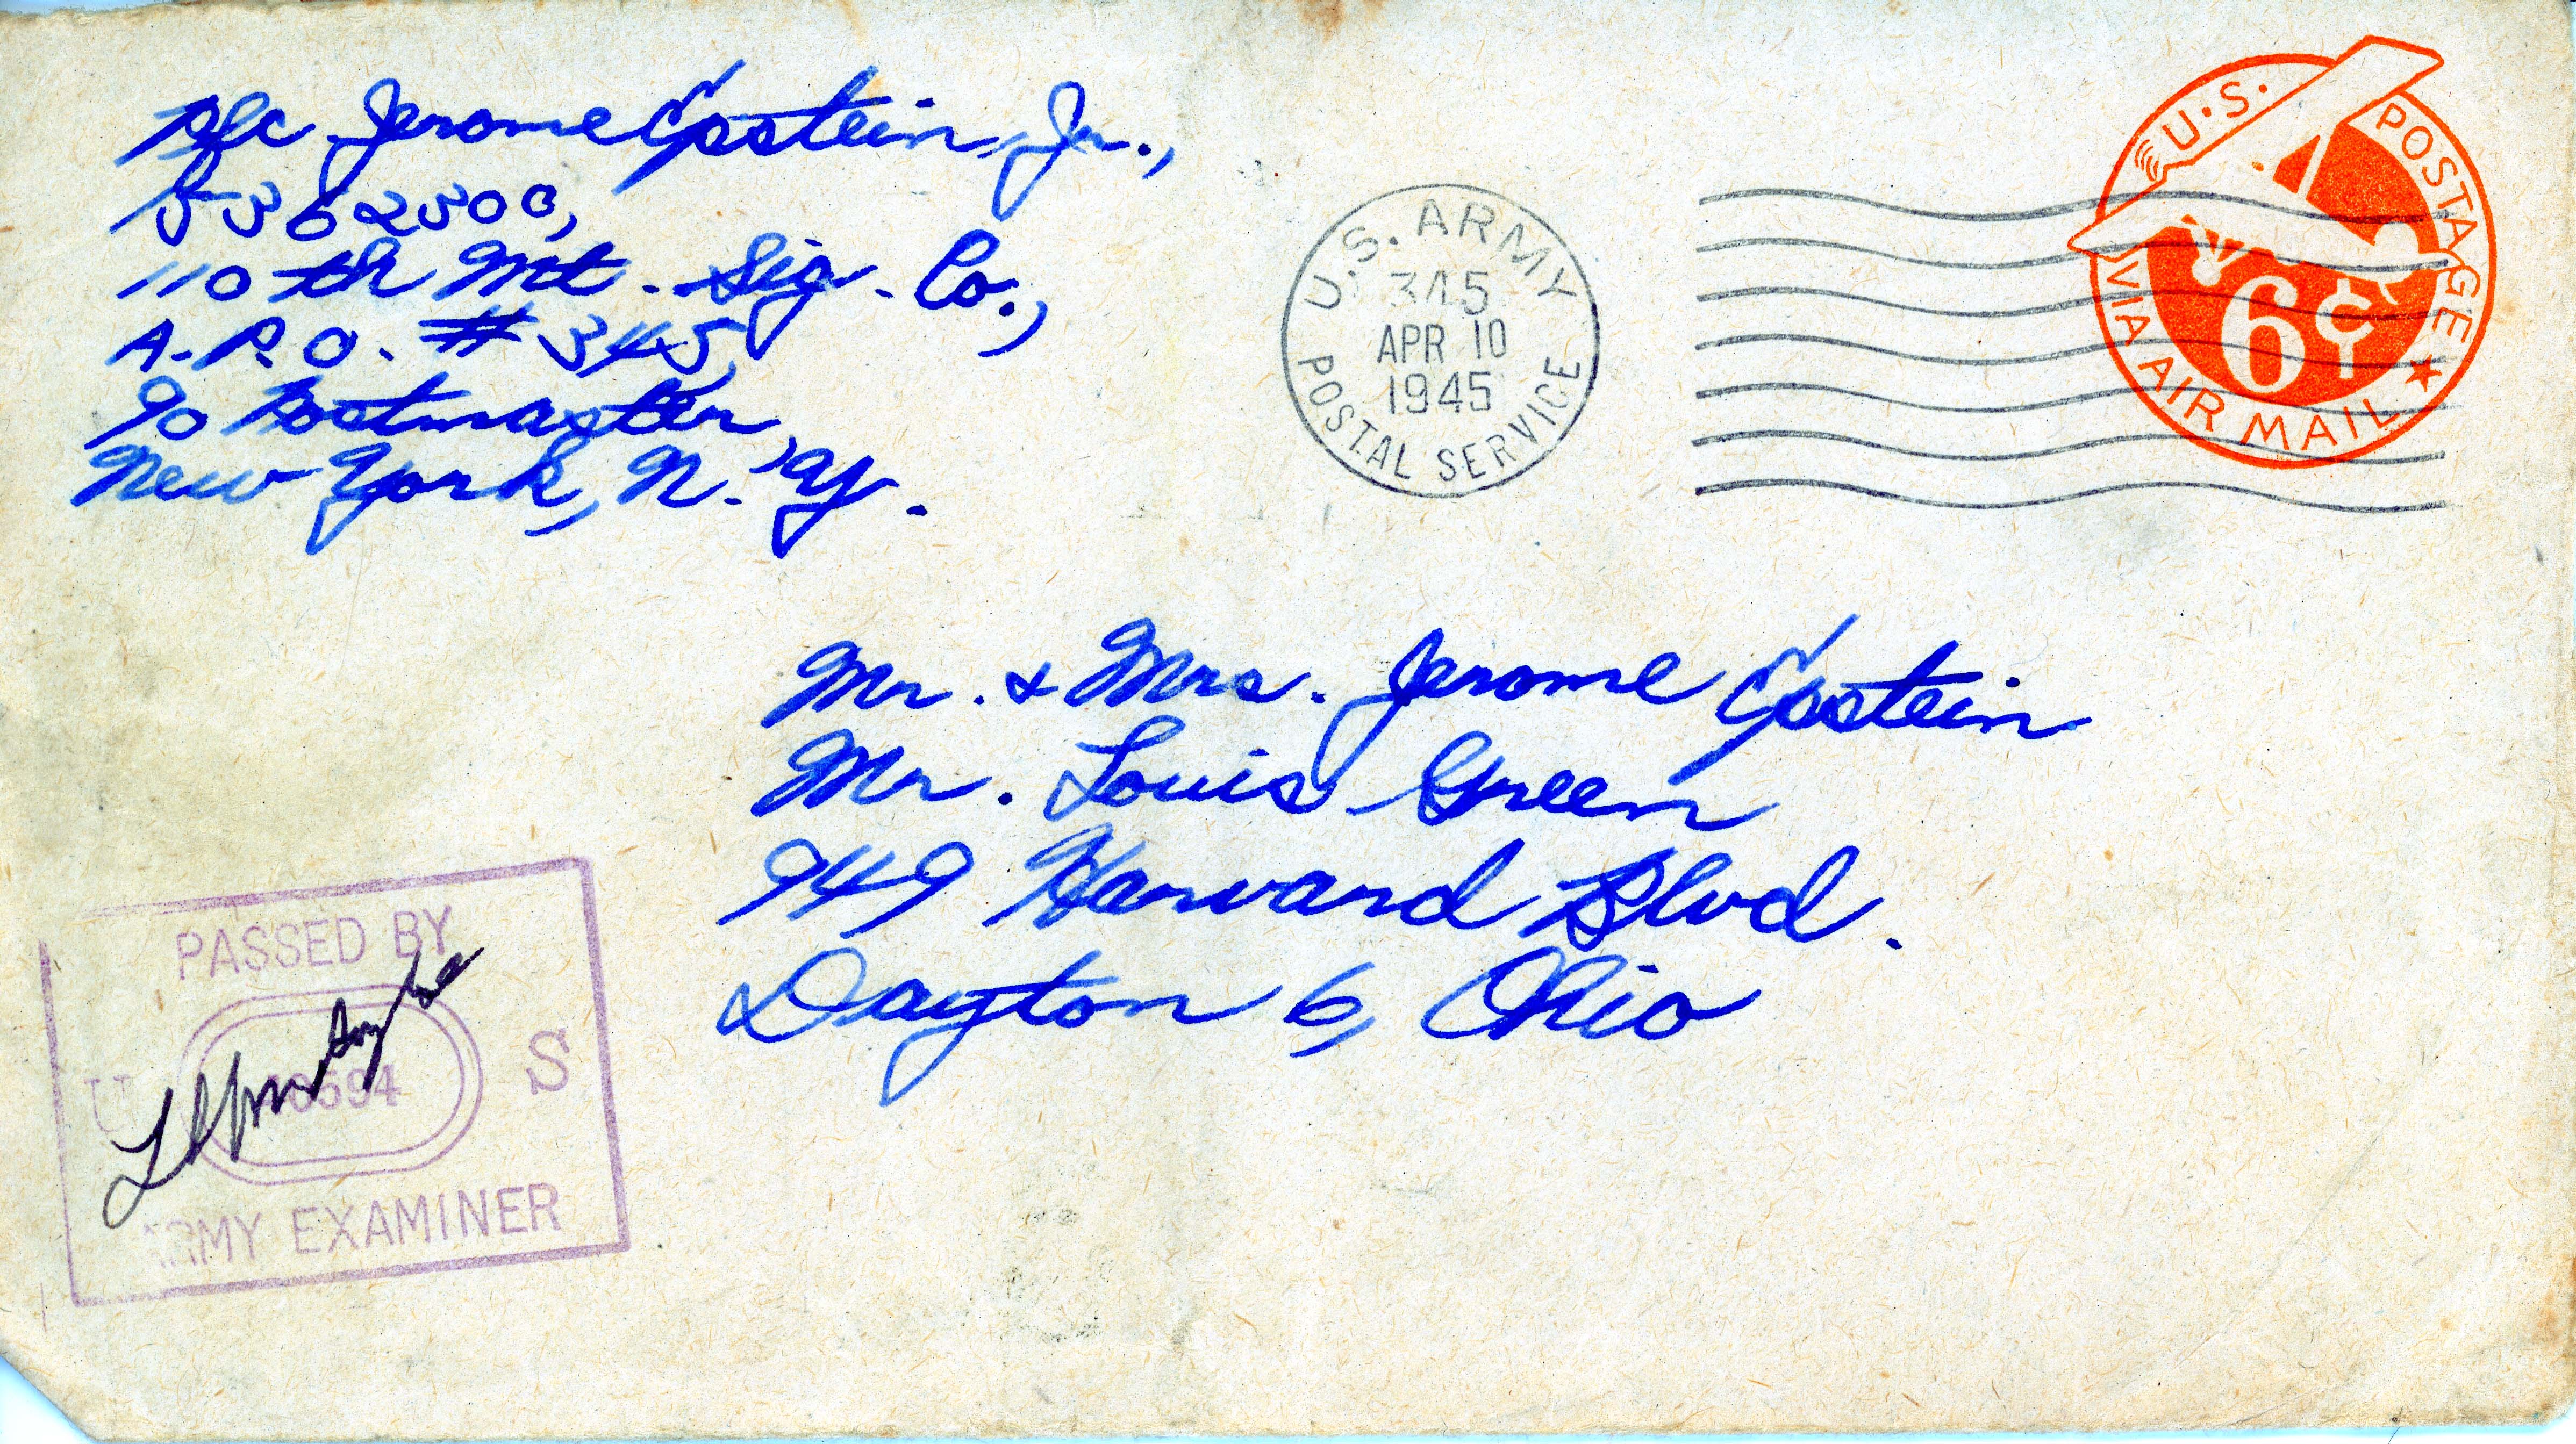 Pfc Jerome Epstein, Jr.,
110th Mt. Sig. Co.,
A.P.O. #345,
c/o Postmaster,
New York, N.Y.
U.S. ARMY
345
APR 10
1945
POSTAL SERVICE
U.S. POSTAGE
6¢
VIA AIR MAIL
Mr. & Mrs. Jerome Epstein
Mr. Louis Green
949 Harvard Blvd.
Dayton 6, Ohio
PASSED BY
U S
ARMY EXAMINER